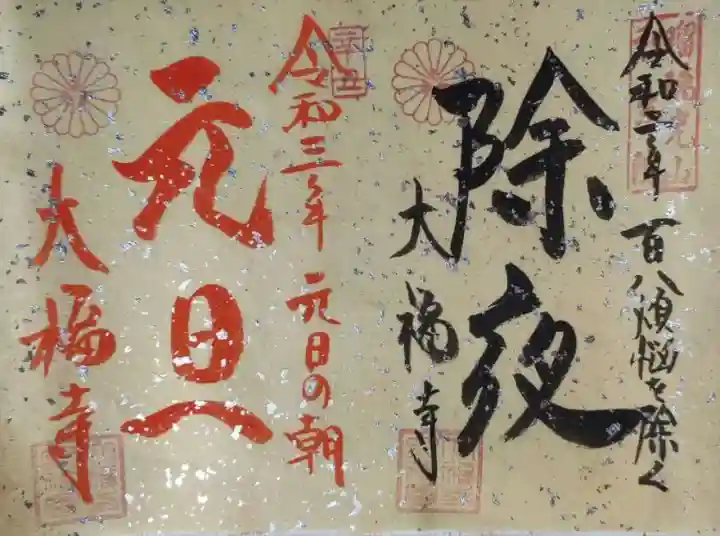 令和二年 百八煩悩を除く
除夜
大福寺
令和三年 元日の朝
元旦へ
大福寺